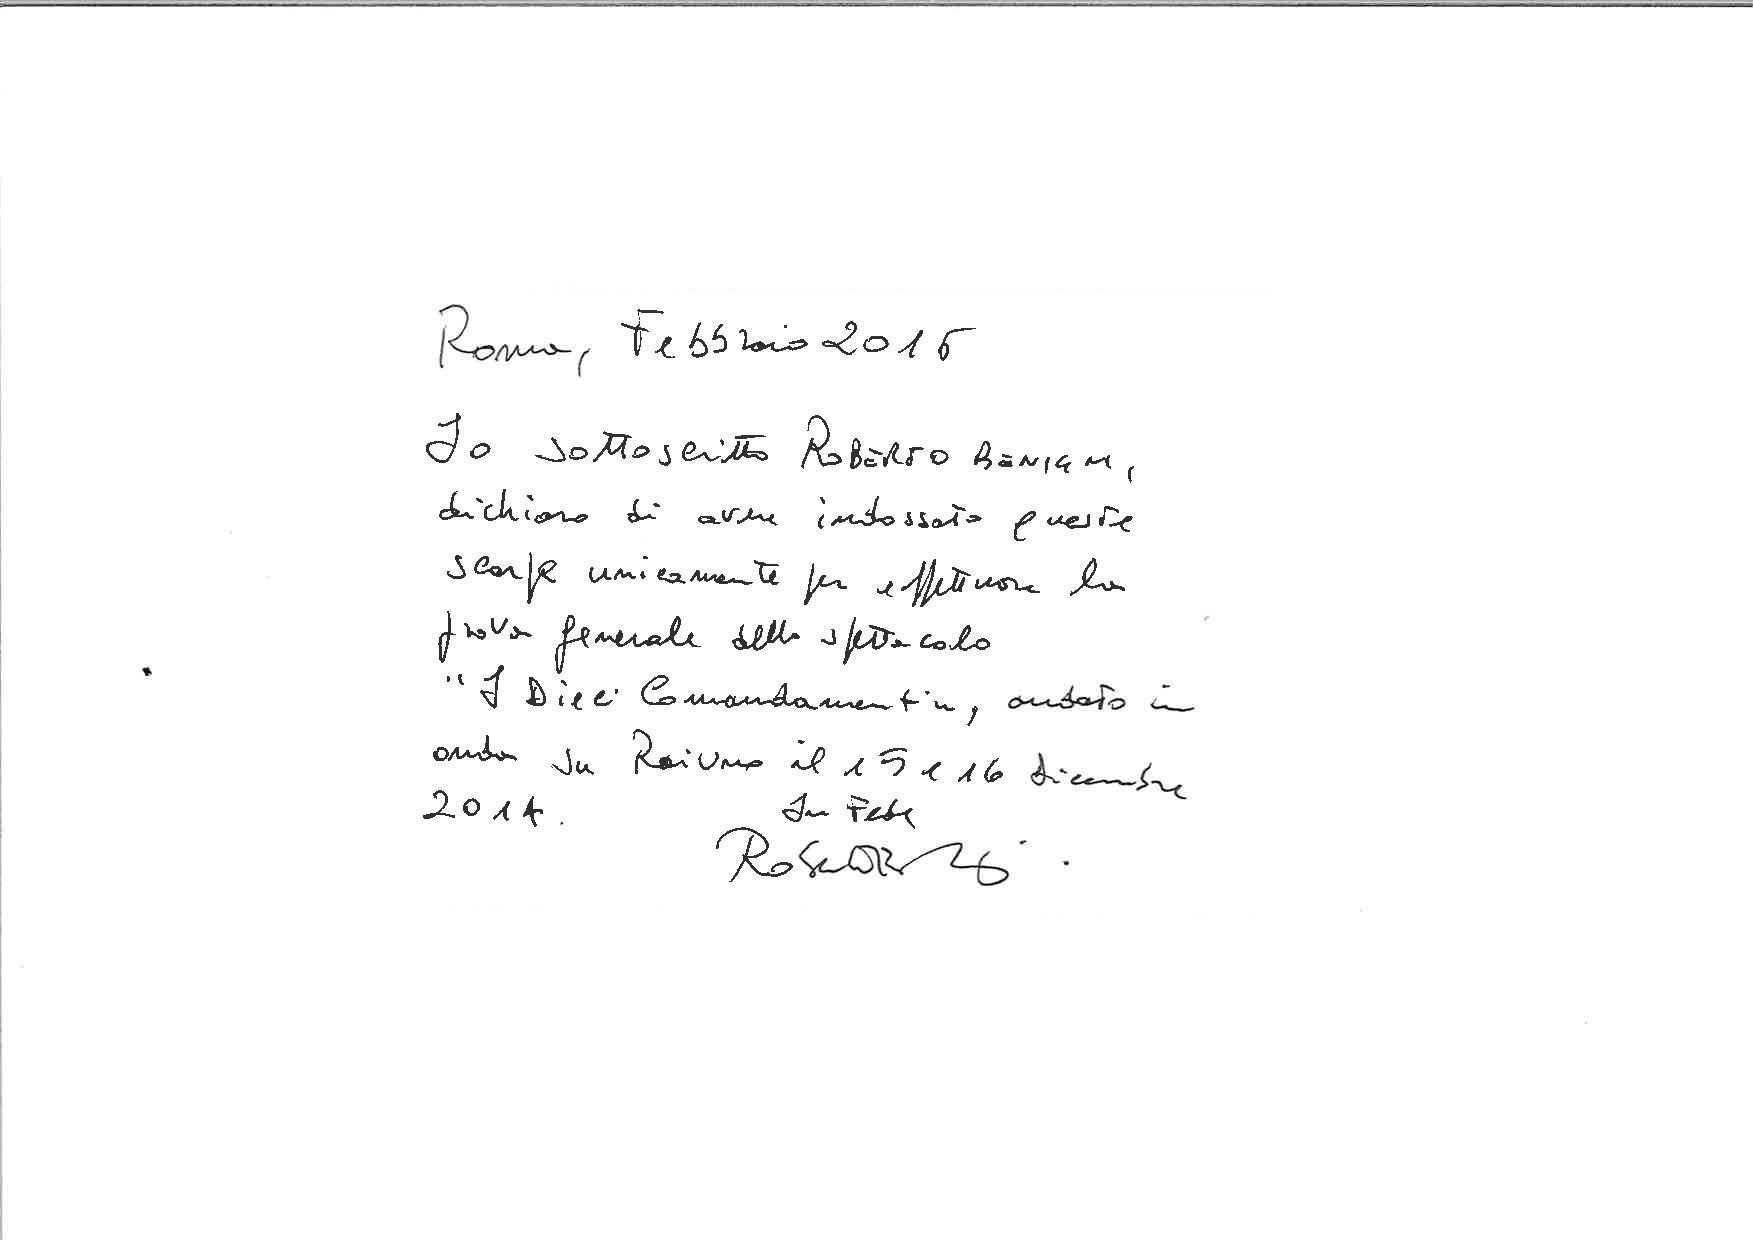 Roma, Febbraio 2015
Io sottoscritto ROBERTO BENIGNI,
dichiaro di avere indossato queste
scarpe unicamente per effettuare la
prova generale dello spettacolo
"I Dieci Comandamenti", andato in
onda su RaiUno il 15 e 16 dicembre
2014. In Fede